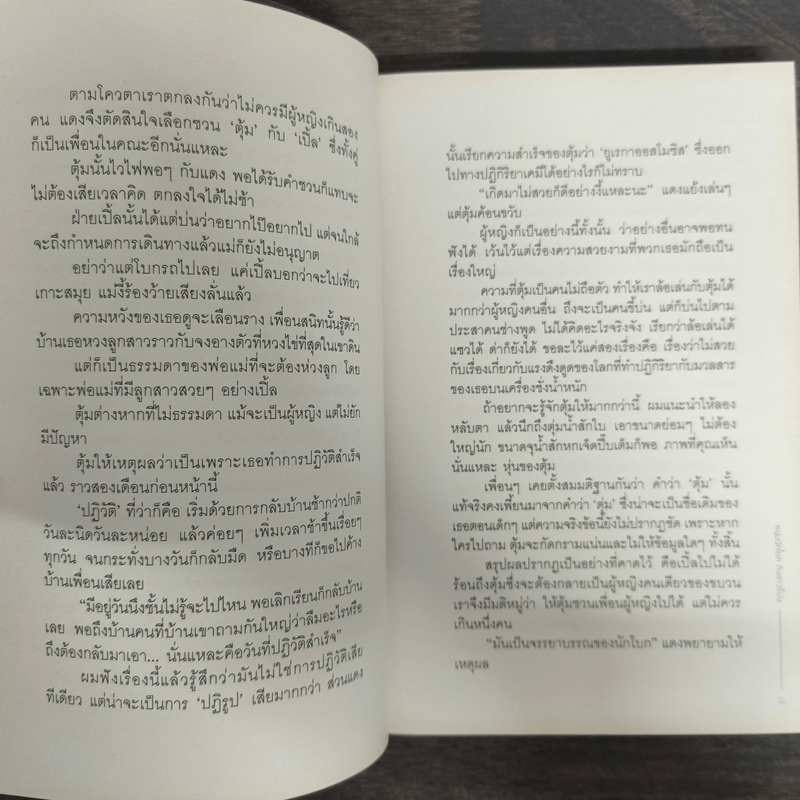 ตามโควตาเราตกลงกันว่าไม่ควรมีผู้หญิงเกินสอง
คน แดงจึงตัดสินใจเลือกชวน ‘ตุ้ม’ กับ ‘เปิ้ล’ ซึ่งทั้งคู่
ก็เป็นเพื่อนในคณะอีกนั่นแหละ
ตุ้มนั้นไวไฟพอๆ กับแดง พอได้รับคำชวนก็แทบจะ
ไม่ต้องเสียเวลาคิด ตกลงใจได้ไม่ช้า
ฝ่ายเปิ้ลนั้นได้แต่บ่นว่าอยากไปอยากไป แต่จนใกล้
จะถึงกำหนดการเดินทางแล้วแม่ก็ยังไม่อนุญาต
อย่าว่าแต่โบกรถไปเลย แค่เปิ้ลบอกว่าจะไปเที่ยว
เกาะสมุย แม่งี้ร้องว้ายเสียงลั่นแล้ว
ความหวังของเธอดูจะเลือนราง เพื่อนสนิทนั้นรู้ดีว่า
บ้านเธอหวงลูกสาวราวกับจงอางตัวที่หวงไข่ที่สุดในเขาดิน
แต่ก็เป็นธรรมดาของพ่อแม่ที่จะต้องห่วงลูก โดย
เฉพาะพ่อแม่ที่มีลูกสาวสวยๆ อย่างเปิ้ล
ตุ้มต่างหากที่ไม่ธรรมดา แม้จะเป็นผู้หญิง แต่ไม่ยัก
มีปัญหา
ตุ้มให้เหตุผลว่าเป็นเพราะเธอทำการปฏิวัติสำเร็จ
แล้ว ราวสองเดือนก่อนหน้านี้
‘ปฏิวัติ’ ที่ว่าก็คือ เริ่มด้วยการกลับบ้านช้ากว่าปกติ
วันละนิดวันละหน่อย แล้วค่อยๆ เพิ่มเวลาช้าขึ้นเรื่อยๆ
ทุกวัน จนกระทั่งบางวันก็กลับมืด หรือบางทีก็ขอไปค้าง
บ้านเพื่อนเสียเลย
“มีอยู่วันนึงชั้นไม่รู้จะไปไหน พอเลิกเรียนก็กลับบ้าน
เลย พอถึงบ้านคนที่บ้านเขาถามกันใหญ่ว่าลืมอะไรหรือ
ถึงต้องกลับมาเอา... นั่นแหละคือวันที่ปฏิวัติสำเร็จ”
ผมฟังเรื่องนี้แล้วรู้สึกว่ามันไม่ใช่การปฏิวัติเสีย
ทีเดียว แต่น่าจะเป็นการ ‘ปฏิรูป’ เสียมากกว่า ส่วนแดง
นั้นเรียกความสำเร็จของตุ้มว่า ‘ยูเรกาออสโมซิส’ ซึ่งออก
ไปทางปฏิกิริยาเคมีได้อย่างไรก็ไม่ทราบ
“เกิดมาไม่สวยก็ดีอย่างงี้แหละนะ” แดงแย้งเล่นๆ
แต่ตุ้มค้อนขวับ
ผู้หญิงก็เป็นอย่างนี้ทั้งนั้น ว่าอย่างอื่นอาจพอทน
ฟังได้ เว้นไว้แต่เรื่องความสวยงามที่พวกเธอมักถือเป็น
เรื่องใหญ่
ความที่ตุ้มเป็นคนไม่ถือตัว ทำให้เราล้อเล่นกับตุ้มได้
มากกว่าผู้หญิงคนอื่น ถึงจะเป็นคนขี้บ่น แต่ก็บ่นไปตาม
ประสาคนช่างพูด ไม่ได้คิดอะไรจริงจัง เรียกว่าล้อเล่นได้
แซวได้ ด่าก็ยังได้ ขอละไว้แค่สองเรื่องคือ เรื่องว่าไม่สวย
กับเรื่องเกี่ยวกับแรงดึงดูดของโลกที่ทำปฏิกิริยากับมวลสาร
ของเธอบนเครื่องชั่งน้ำหนัก
ถ้าอยากจะรู้จักตุ้มให้มากกว่านี้ ผมแนะนำให้ลอง
หลับตา แล้วนึกถึงตุ่มน้ำสักใบ เอาขนาดย่อมๆ ไม่ต้อง
ใหญ่นัก ขนาดจุน้ำสักหกเจ็ดปี๊บเต็มก็พอ ภาพที่คุณเห็น
นั่นแหละ หุ่นของตุ้ม
เพื่อนๆ เคยตั้งสมมติฐานกันว่า คำว่า ‘ตุ้ม’ นั้น
แท้จริงคงเพี้ยนมาจากคำว่า ‘ตุ่ม’ ซึ่งน่าจะเป็นชื่อเดิมของ
เธอตอนเด็กๆ แต่ความจริงข้อนี้ยังไม่ปรากฏชัด เพราะหาก
ใครไปถาม ตุ้มจะกัดกรามแน่นและไม่ให้ข้อมูลใดๆ ทั้งสิ้น
สรุปผลปรากฏเป็นอย่างที่คาดไว้ คือเปิ้ลไปไม่ได้
ร้อนถึงตุ้มซึ่งจะต้องกลายเป็นผู้หญิงคนเดียวของขบวน
เราจึงมีมติหมู่ว่า ให้ตุ้มชวนเพื่อนผู้หญิงไปได้ แต่ไม่ควร
เกินหนึ่งคน
“มันเป็นจรรยาบรรณของนักโบก” แดงพยายามให้
เหตุผล